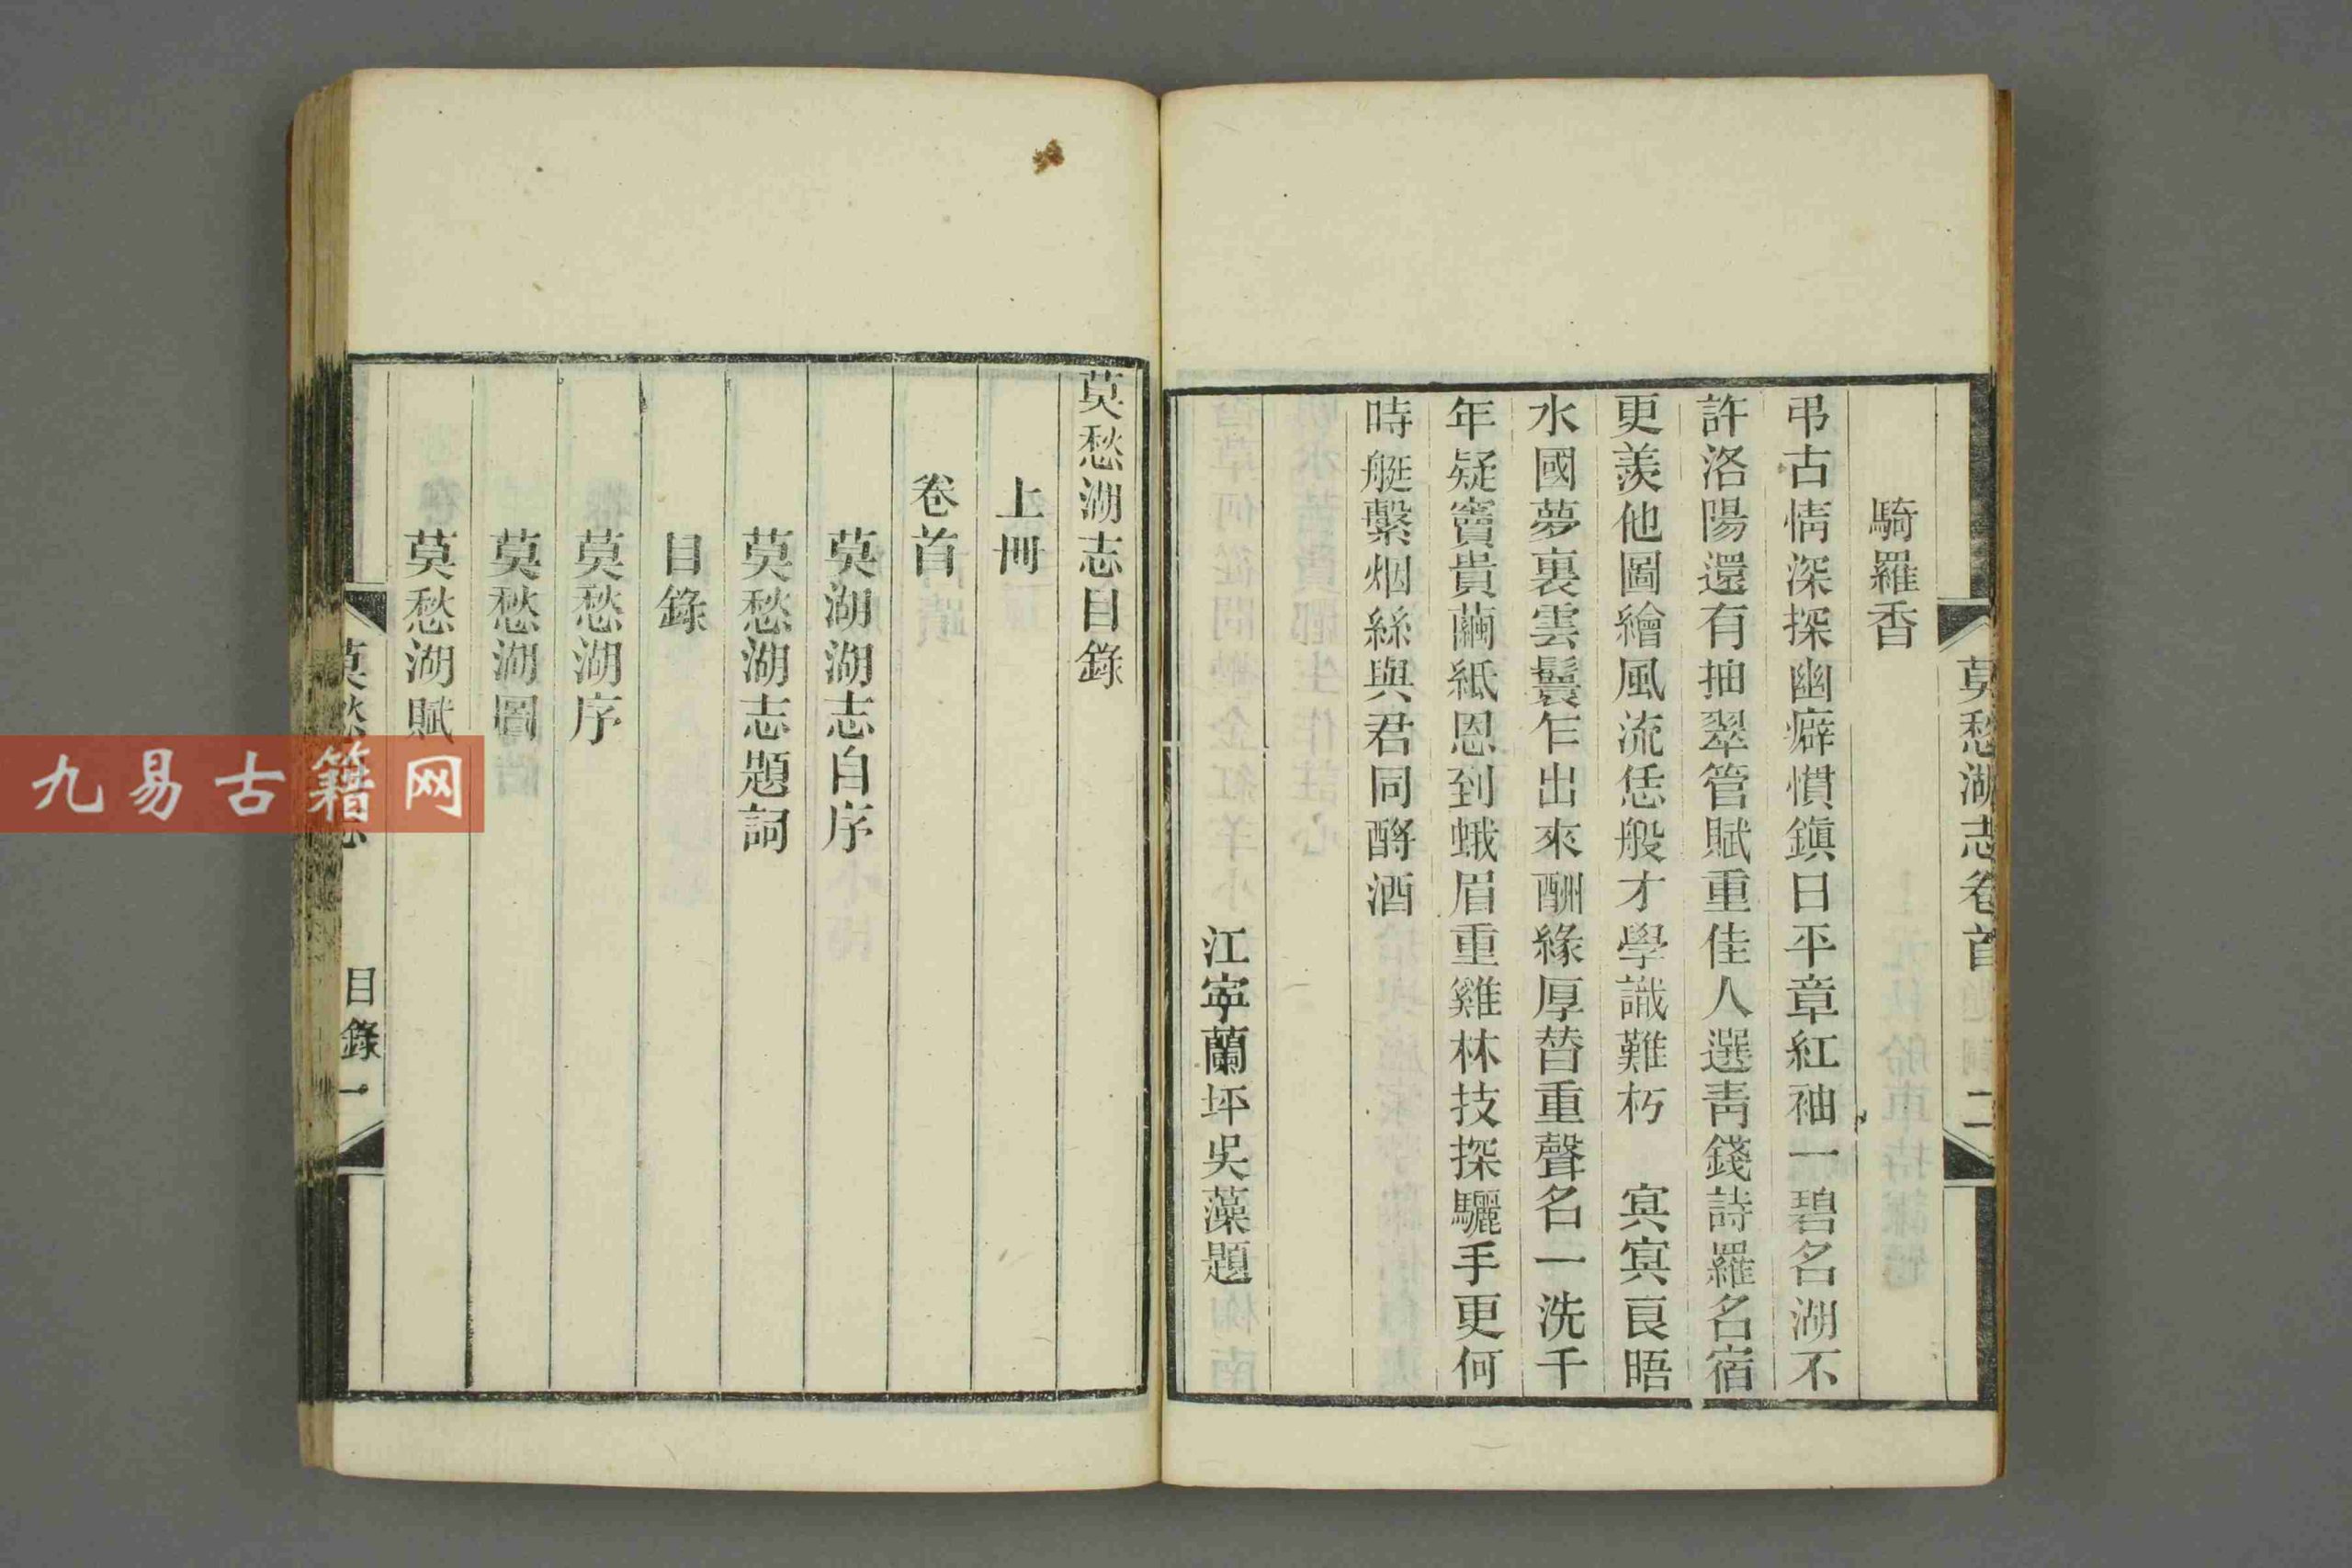 騎羅香
弔古情深探幽癖慣鎭日平章紅袖一碧名湖不
許洛陽還有抽翠管賦重佳人選靑錢詩羅名宿
更羨他圖繪風流恁般才學識難朽　寞寞良晤
水國夢裏雲鬟乍出來酬緣厚替重聲名一洗千
年疑竇貴繭紙恩到蛾眉重雞林技探驪手更何
時艇繫烟絲與君同酹酒
江寜蘭坪吳藻題
莫愁湖志卷首
二
莫愁湖志目錄
上冊
卷首
莫湖湖志自序
莫愁湖志題詞
目錄
莫愁湖序
莫愁湖圖
莫愁湖賦
目錄
一
九易古籍网